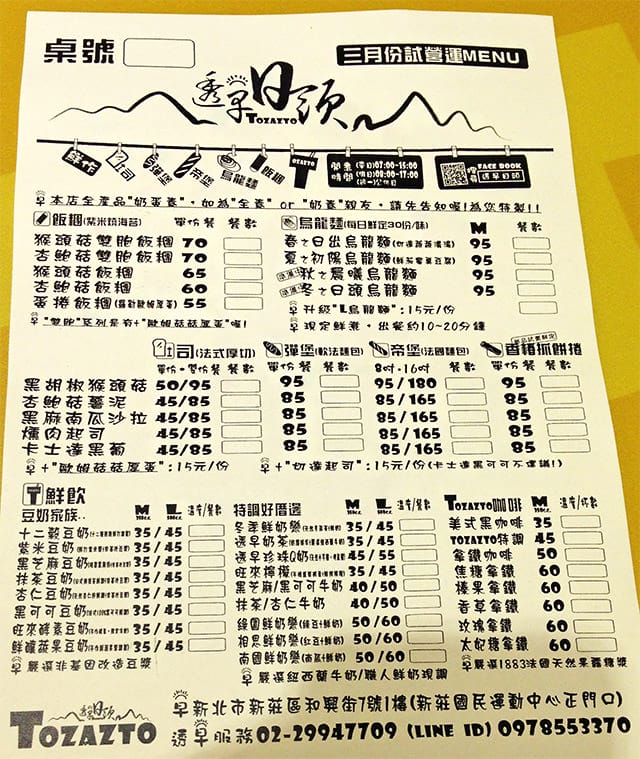 桌號
三月份試營運MENU
透早日頭
TOZAZTO
鮮作
吐司
彈堡
帝堡
烏龍麵
飯糰
TOZAZTO
開業時間
(平日)07:00-15:00
(週休)08:00-17:00
搜尋
FACE BOOK
透早日頭
本店全產品"奶蛋素",如為"全素" or "奶素"親友,請先告知喔!為您特製!!
飯糰(紫米燒海苔) 單份餐 餐數
猴頭菇雙胞飯糰 70
杏鮑菇雙胞飯糰 70
猴頭菇飯糰 65
杏鮑菇飯糰 60
蛋捲飯糰 55
"雙胞"系列是有+"歐姆菇菇厚蛋"喔!
烏龍麵(每日鮮定30份/味) M 餐數
春之日出烏龍麵 95
夏之初陽烏龍麵 95
秋之晨曦烏龍麵 95
冬之日頭烏龍麵 95
升級"L烏龍麵":15元/份
現定鮮煮,出餐約10~20分鐘
吐司(法式厚切) 單份・雙份餐 餐數
彈堡(軟法麵包) 單份餐 餐數
帝堡(法國麵包) 8吋・16吋 餐數
香椿抓餅捲 單份餐 餐數
黑胡椒猴頭菇 50/95 95 95/180 95
杏鮑菇薯泥 45/85 85 85/165 85
黑麻南瓜沙拉 45/85 85 85/165 85
燻肉起司 45/85 85 85/165 85
卡士達黑葡 45/85 85 85/165 85
+"歐姆菇菇厚蛋":15元/份
+"切達起司":15元/份(卡士達黑可可不建議!)
鮮飲
豆奶家族.. M L 溫度/餐數
十二穀豆奶 35/45
紫米豆奶 35/45
黑芝麻豆奶 35/45
抹茶豆奶 35/45
杏仁豆奶 35/45
黑可可豆奶 35/45
旺來酵素豆奶 35/45
鮮纖蔬果豆奶 35/45
嚴選非基因改豆漿
特調好厝邊 M L 溫度/餐數
冬季鮮奶樂 35/45
透早奶茶 35/45
透早珍珠Q奶 45/55
旺來檸檬 35/45
黑芝麻/黑可可牛奶 40/50
抹茶/杏仁牛奶 40/50
綠園鮮奶樂(綠豆+鮮奶) 50/60
相思鮮奶樂(紅豆+鮮奶) 50/60
南國鮮奶樂(南瓜+鮮奶) 50/60
嚴選紐西蘭牛奶/職人鮮奶現調
TOZAZTO咖啡 M 溫度/杯數
美式黑咖啡 35
TOZAZTO特調 45
拿鐵咖啡 50
焦糖拿鐵 60
榛果拿鐵 60
香草拿鐵 60
玫瑰拿鐵 60
太妃糖拿鐵 60
嚴選1883法國天然果露糖漿
透早日頭
TOZAZTO
新北市新莊區和興街7號1樓(新莊國民運動中心正門口)
透早服務02-29947709 (LINE ID) 0978553370